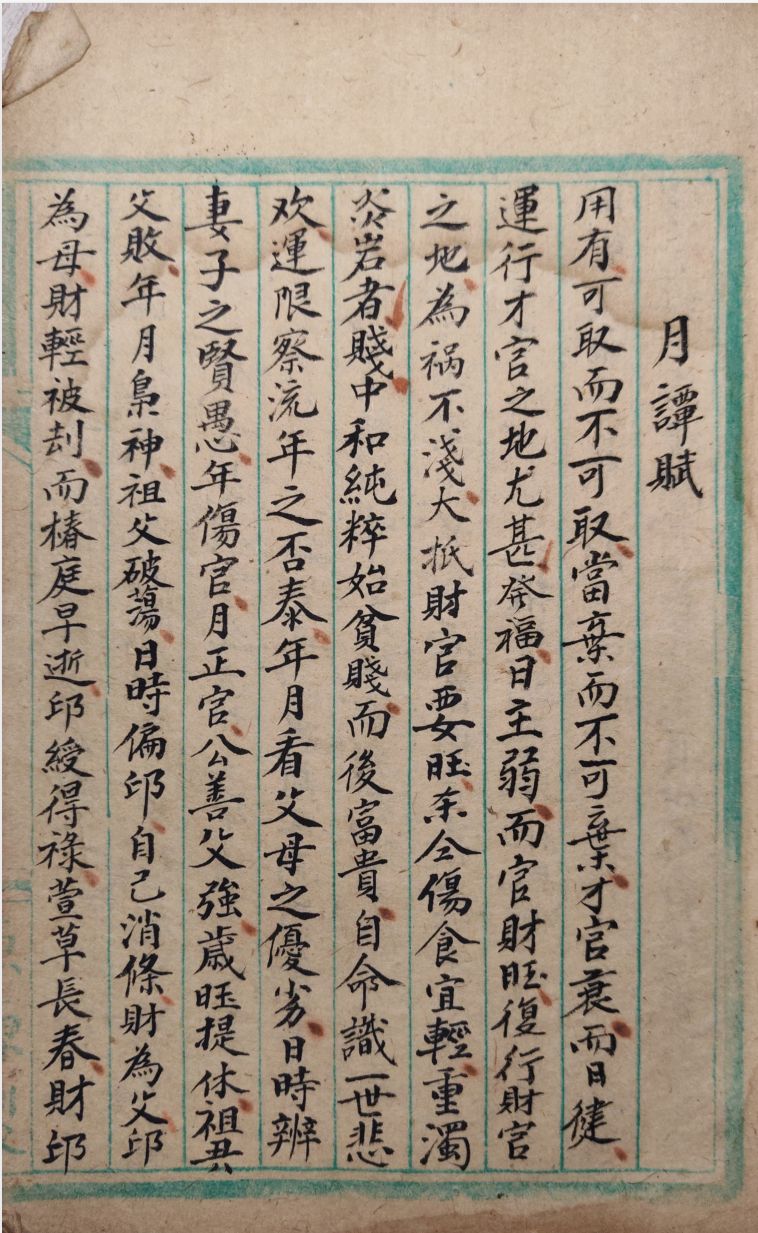 月譚賦
用有可取而不可取當棄而不可棄才官衰而日健
運行才官之地尤甚發福日主弱而官財旺復行財官
之地為祸不淺大抵財官要旺枭仝傷食宜輕重濁
炎岩者賤中和純粹始貧賤而後富貴自命識一世悲
欢運限察流年之否泰年月看父母之優劣日時辨
妻子之賢愚年傷官月正官公善父強歲旺提休祖丑
父敗年月梟神祖父破蕩日時偏印自己消條財為父印
為母財輕被刦而椿庭早逝印綬得祿萱草長春財印